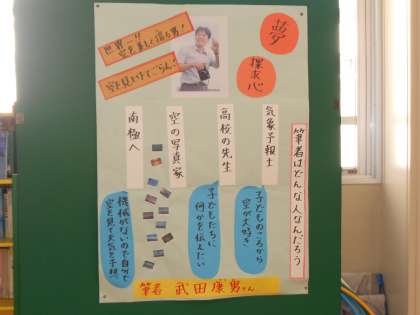 夢
探求心
世界一
空を美しく撮る男!
空を見上げてごらん!
筆者はどんな人なんだろう
気象予報士
高校の先生
空の写真家
南極へ
子どものころから
空が大好き
子どもたちに
何かを伝えたい
機械がないので自分で
空を見て天気を予想
筆者 武田康男さん